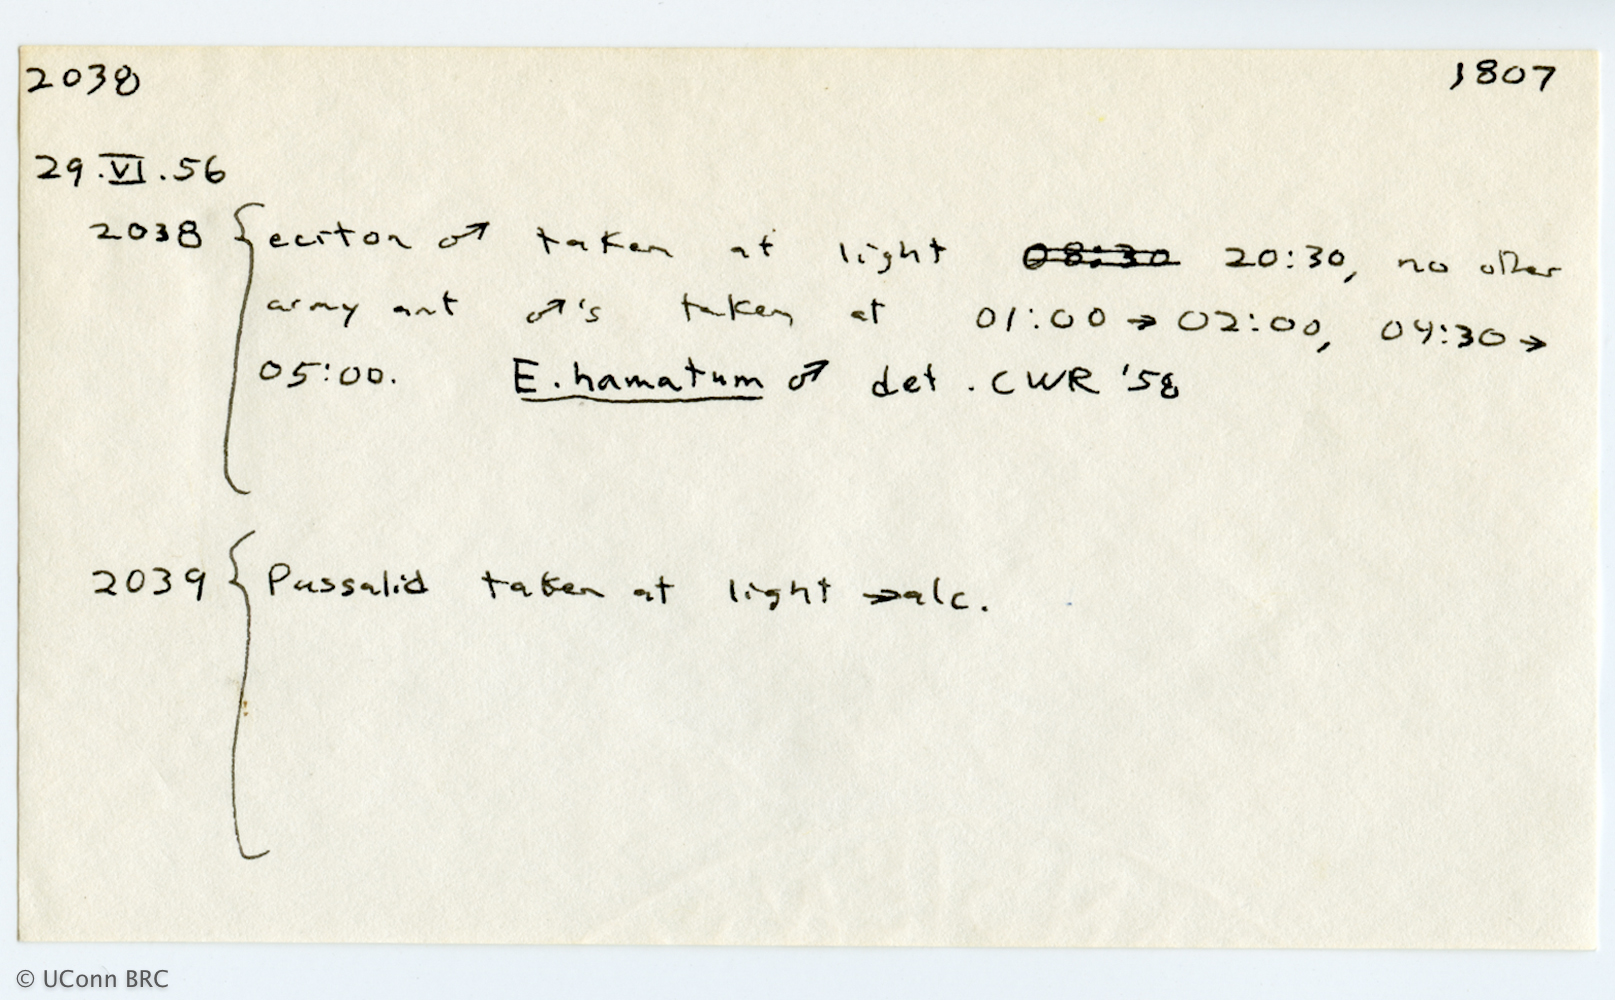 2038 1807
29.VI.56
2038 { eciton ♂ taken at light 08:30 20:30, no other
army ant ♂'s taken at 01:00 → 02:00, 04:30 →
05:00. E. hamatum ♂ det. CWR '58
2039 { Passalid taken at light → alc.
© UConn BRC